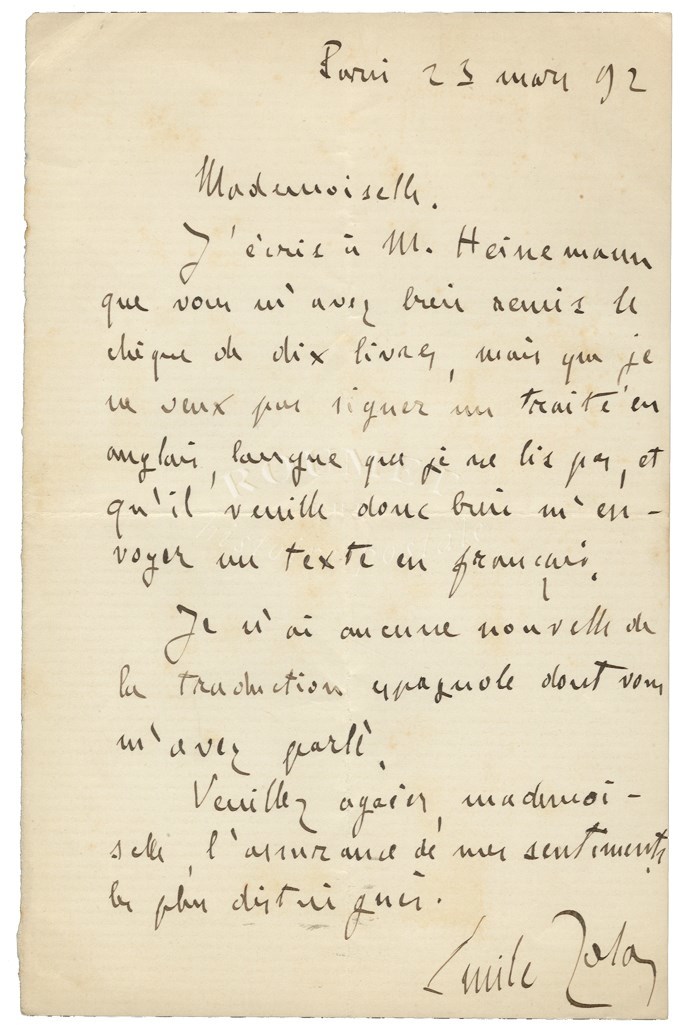 Paris 23 mars 92
Mademoiselle.
J'écris à M. Heinemann
que vous m'avez bien remis le
chèque de dix livres, mais que je
ne veux pas signer un traité en
anglais, langue que je ne lis pas, et
qu'il veuille donc bien m'en-
voyer un texte en français.
Je n'ai aucune nouvelle de
la traduction espagnole dont vous
m'avez parlé.
Veuillez agréer, mademoi-
selle, l'assurance de mes sentiments
les plus distingués.
Emile Zola